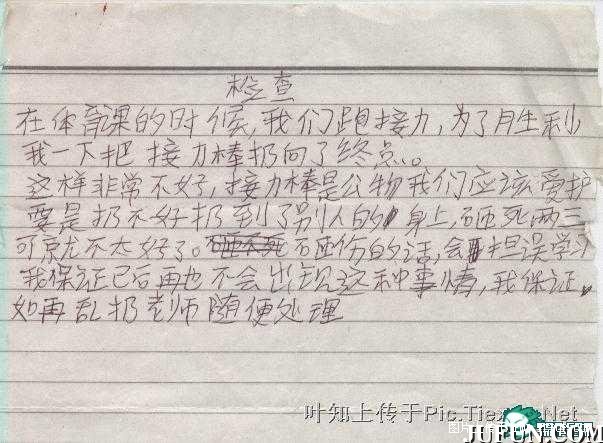 检查
在体育课的时候,我们跑接力,为了胜利
我一下把接力棒扔向了终点。
这样非常不好,接力棒是公物我们应该爱护
要是扔不好扔到了别人的身上,砸死两三
可就不太好了。砸伤的话,会担误学习
我保证已后再也不会出现这种事情,我保证。
如再乱扔老师随便处理
叶知上传于Pic.Tiexue.Net
JUPUN.COM